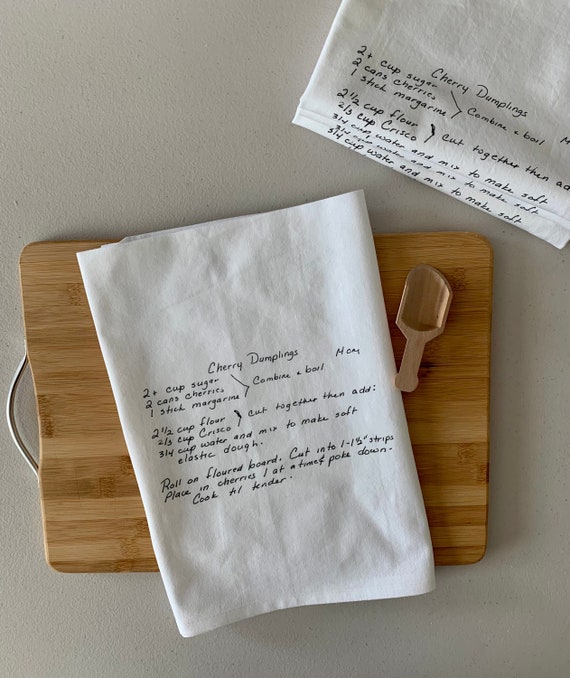 Cherry Dumplings
2+ cup sugar
2 cans cherries
1 stick margarine
Combine & boil
2 1/2 cup flour
2/3 cup Crisco
Cut together then add
3/4 cup water and mix to make soft
3/4 cup water and mix to make soft
3/4 cup water and mix to make soft
Cherry Dumplings Mom
2+ cup sugar
2 cans cherries
1 stick margarine
Combine & boil
2 1/2 cup flour
2/3 cup Crisco
Cut together then add:
3/4 cup water and mix to make soft
elastic dough.
Roll on floured board. Cut into 1-1½" strips
Place in cherries 1 at a time & poke down.
Cook til tender.